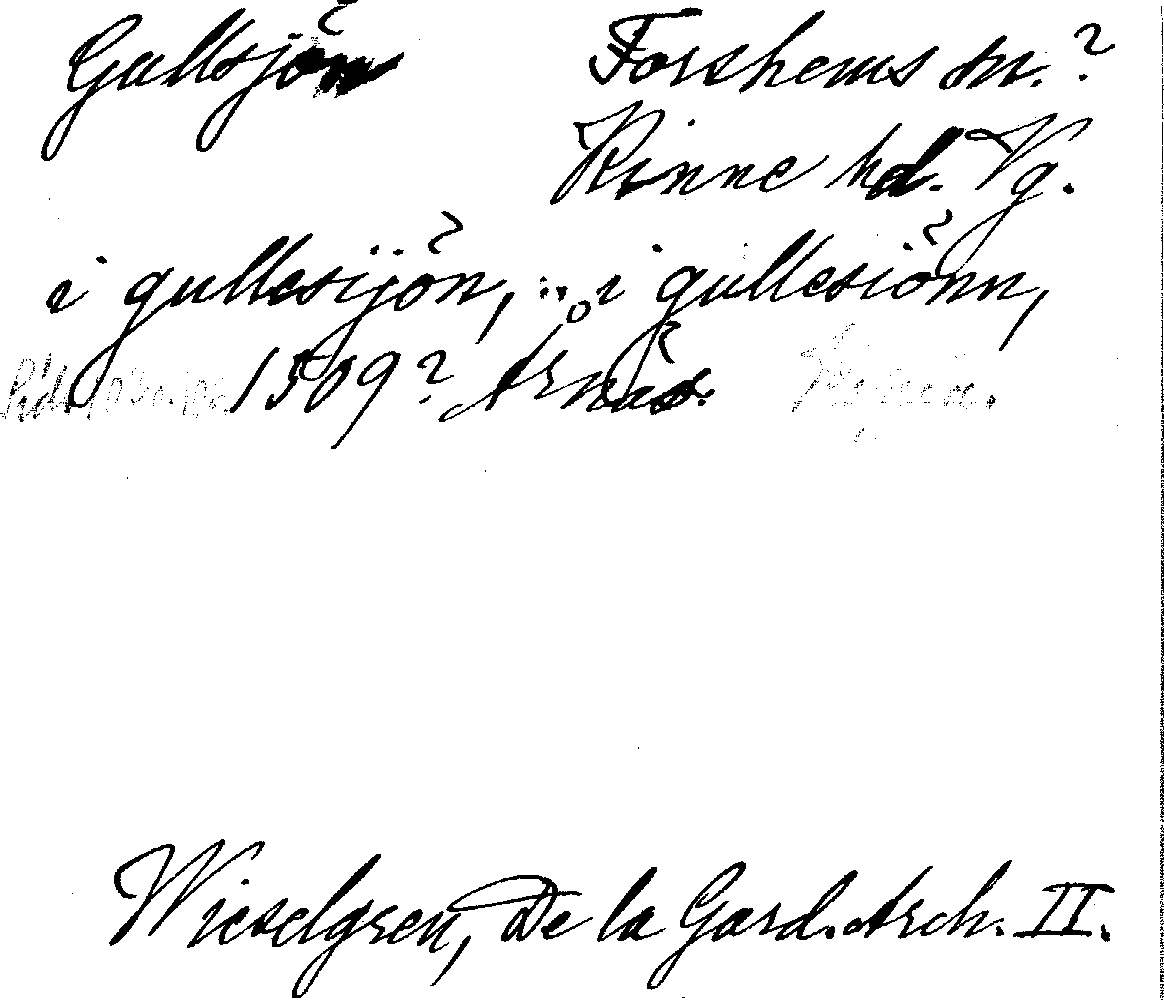 Gullsjön Forshems sn.?
Kinne hd. Vg.
i gullesijön, i gullesiönn,
1509? Årnäs. Kopia.
Wieselgren, De la Gard. Arch. II.